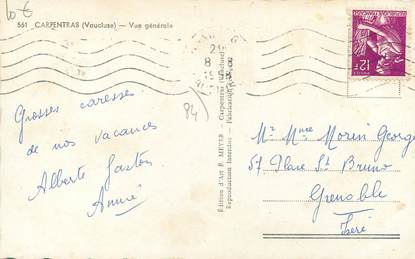 10 €
561 CARPENTRAS (Vaucluse) — Vue générale
Grosses caresses
de nos vacances
Alberte Gaston
Aimée
84
Édition d'Art F. MEYER — Carpentras (Vaucluse)
Reproduction Interdite — Fabrication
21
8 - 8
12F
Mr Mme Morin George
57 Place St Bruno
Grenoble
Isère